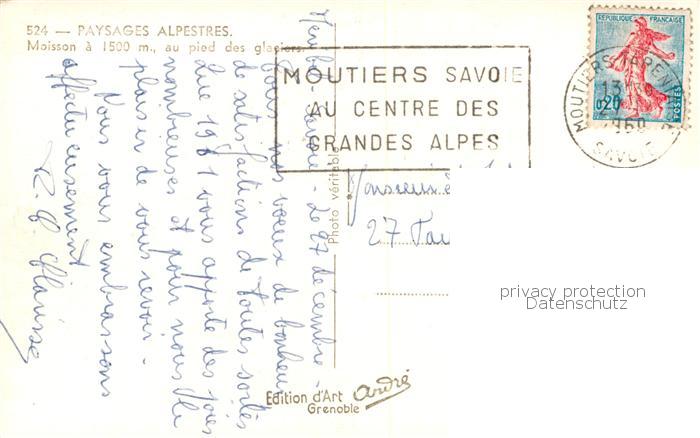 524 — PAYSAGES ALPESTRES.
Moisson à 1500 m., au pied des glaciers.
Savoie - Le 27 décembre -
Tous nos vœux de bonheur
de satisfactions de toutes sortes
Que 1961 vous apporte des joies
nombreuses et pour nous le
plaisir de vous revoir.
Nous vous embrassons
affectueusement
Photo véritable
Edition d'Art André
Grenoble
MOUTIERS SAVOIE
AU CENTRE DES
GRANDES ALPES
REPUBLIQUE FRANÇAISE
0,20
POSTES
MOUTIERS TARENTAISE
13
1960
SAVOIE
Monsieur
27
privacy protection
Datenschutz